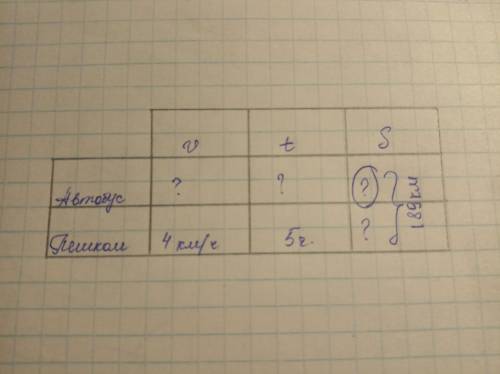 v t S
Автобус ? ? ?
Пешком 4 км/ч 5ч. ?
189 км